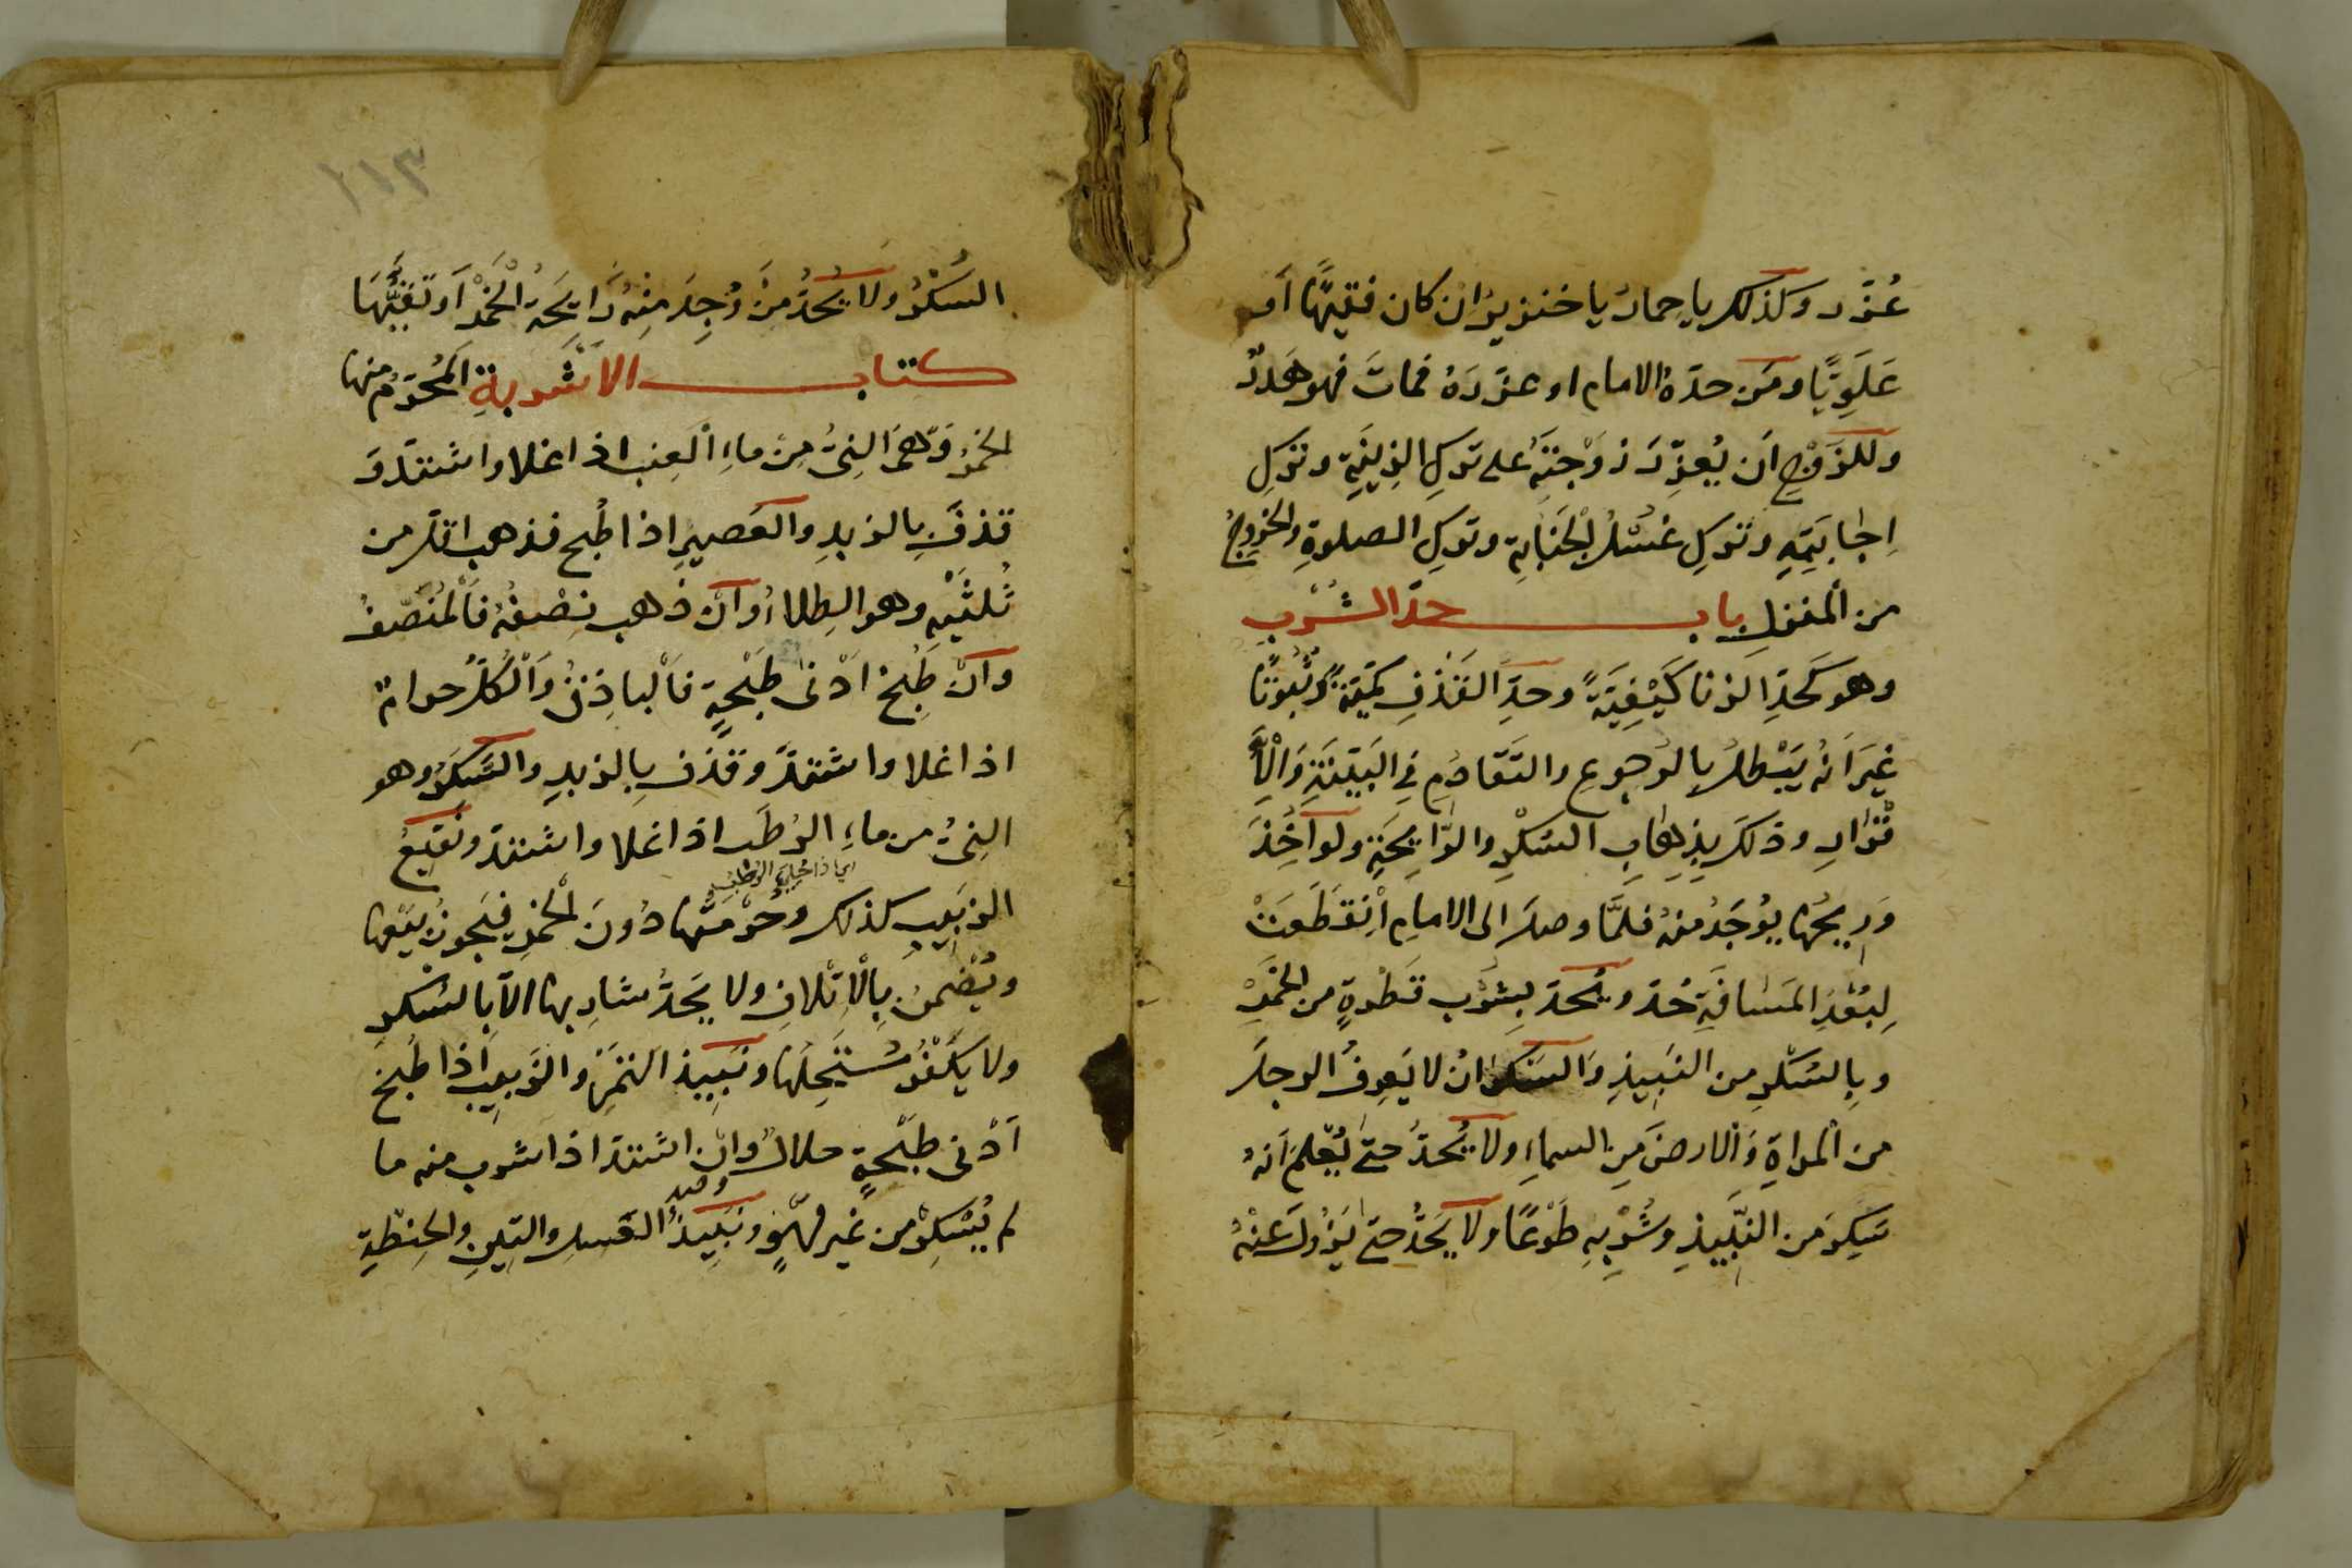 عُزِّر وكذلك يا حمار يا خنزير ان كان فقيهًا اَو
عَلَوِيًّا ومَن حدّهُ الامام او عزّرَهُ فماتَ فهو هَدرٌ
وللزَّوْجِ اَن يُعزِّرَ زَوْجَتَهُ على تركِ الزِينَةِ وتركِ
اِجابَتِهِ وتركِ غُسْلِ الْجَنابةِ وتركِ الصلوةِ والخروجِ
من المنزلِ باب حدّ الشُرْبِ
وهو كَحَدِّ الزنا كَيْفِيَةً وحدِّ القَذفِ كمّيّةً وثُبُوتًا
غيرَ اَنهُ يَبْطلُ بالرجوعِ والتَقَادُمِ في البَيّنَةِ وَالْاِ
قْرارِ وذلكَ بِذِهابِ السُكْرِ والرَّايحَةِ ولو اُخِذَ
وَرِيحُها يُوجَدُ منهُ فلَمَّا وصلَ الى الامامِ اْنقَطَعَتْ
لِبُعْدِ المَسافَةِ حُدَ ويُحَدّ بِشُرْبِ قَطْرةٍ من الخَمْرِ
وبِالسُكْرِ من النَبِيذِ وَالسَكرانُ لا يَعرِفُ الرجلَ
من المراةِ وَالارضَ مِن السماءِ ولا يُحدُّ حتى يُعْلَمَ اَنهُ
سَكِرَ من النَّبِيذِ وشُرْبِهِ طَوْعًا ولا يُحَدُّ حتى يَزُولَ عنْهُ
١١٣
السُكْرُ ولا يُحَدُّ مَن وُجِدَ مِنْهُ رَايحَةُ الْخَمْرِ اَو تَقَيَّهَا
كتاب الاَشْربةِ المُحَرّمُ منها
الخمرُ وَهيَ النِىُّ مِن ماءِ الْعِنبِ اذا غلا واشتدّ وَ
قذفَ بالزبدِ والعَصِيرِ اذا طُبخ فذهب اقلّ من
ثُلثَيْهِ وهو الطِلاءُ وَان ذهب نِصْفُهُ فَالْمُنَصّفُ
وَانْ طُبِخَ اَدْنى طَبْخةٍ فَالْباذِقُ وَالْكُلُّ حرامٌ
اذا غلا واشتدَّ وقذف بِالزبدِ والسَكَرُ وهو
النِىُّ من ماءِ الرُطَبِ اذا غلا واشتدّ ونَقِيعُ
اى اذا
الزبِيبِ كذلك وحُرْمَتُها دُونَ الْخمرِ فيَجوزُ بيْعها
ويُضْمنُ بِالْاِتْلافِ ولا يَحَدُّ شارِبها الّا بالسُكرِ
ولا يكْفُرُ مُسْتَحِلّها ونَبِيذ التمْرِ والزبيبِ اذا طُبخَ
اَدْنى طَبْخةٍ حلالٌ وان اشتدّ اذا شرب منه ما
لم يُسْكِرْ من غيرِ لَهْوٍ ونَبِيذُ العَسلِ والتِينِ والحِنْطةِ